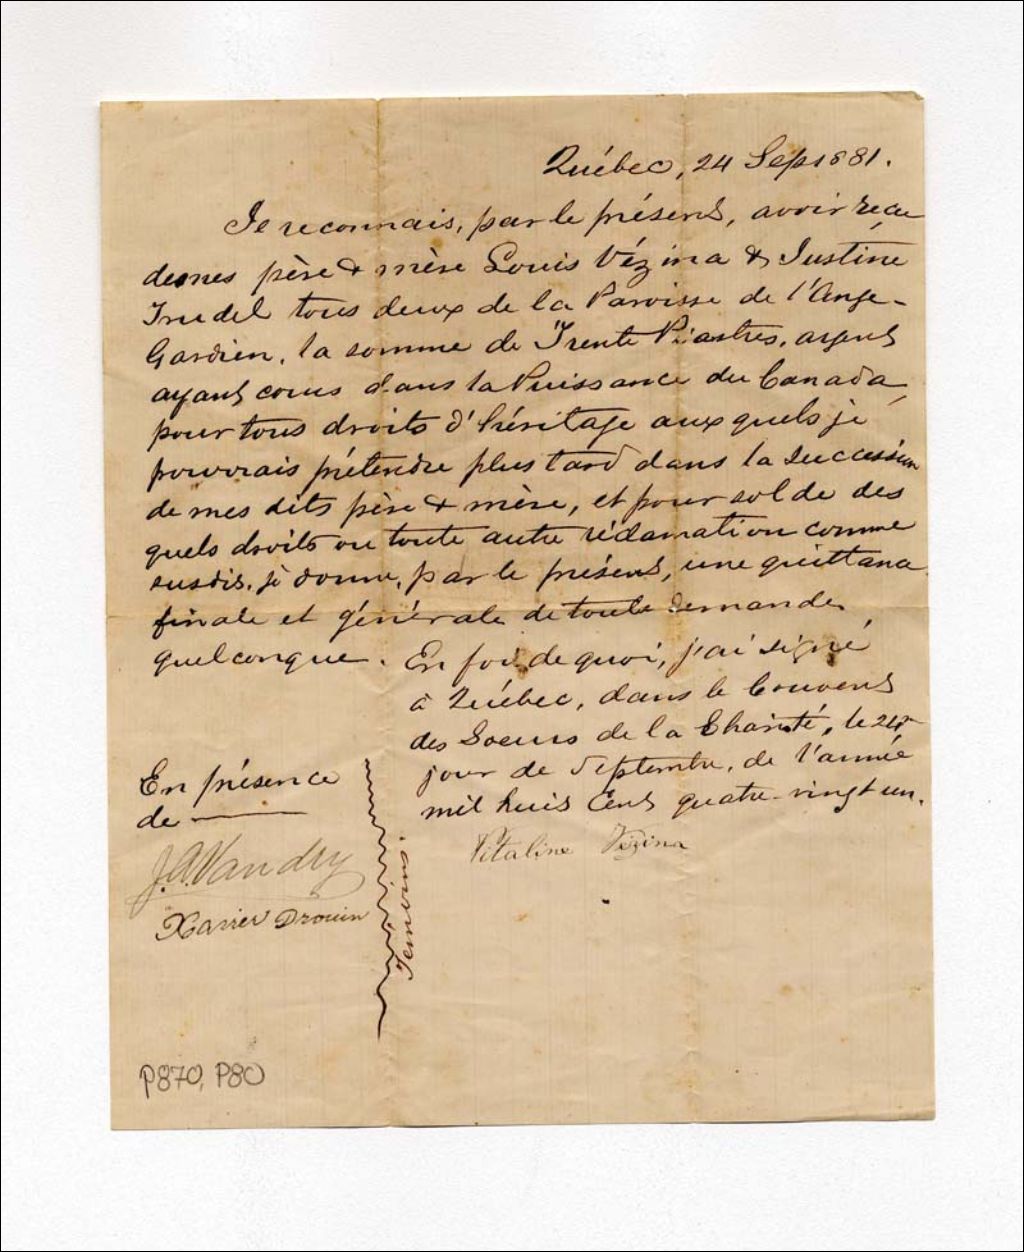 Québec, 24 Sept 1881.
Je reconnais, par le présent, avoir reçu
de mes père & mère Louis Vézina & Justine
Trudel tous deux de la Paroisse de l'Ange-
Gardien, la somme de Trente Piastres, ayant
ayant cours dans la Puissance du Canada,
pour tous droits d'héritage aux quels je
pourrais prétendre plus tard dans la succession
de mes dits père & mère, et pour solde des
quels droits ou toute autre réclamation comme
susdit, je donne, par le présent, une quittance
finale et générale de toute demande
quelconque. En foi de quoi, j'ai signé
à Québec, dans le Couvent
des Soeurs de la Charité, le 24
jour de Septembre, de l'année
mil huit cent quatre-vingt un.
Vitaline Vézina
En présence
de
J.A. Vandry
Xavier Drouin
Témoins.
P870, P80